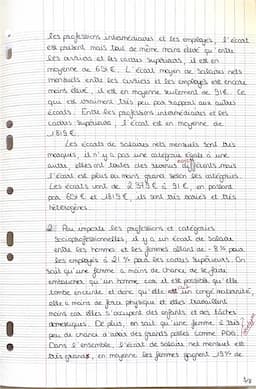 les professions intermédiaires et les employés, l'écart
est présent mais tout de même moins élevé qu'entre
les ouvriers et les cadres supérieurs, il est en
moyenne de 651 €. L'écart moyen de salaires nets
mensuels entre les ouvriers et les employés est encore
moins élevé, il est en moyenne seulement de 91€. Ce
qui est vraiment très peu par rapport aux autres
écarts. Entre les professions intermédiaires et les
cadres supérieurs, l'écart est en moyenne de
1819 €.
Les écarts de salaires nets mensuels sont très
marqués, il n'y a pas une catégorie égale à une
autre, elles ont toutes des revenus différents mais
l'écart est plus ou moins grand selon les catégories.
Les écarts vont de € à 91 €, en passant
par 651 € et 1819 €, ils sont très variés et très
hétérogènes.
2) Peu importe les professions et catégories
socioprofessionnelles, il y a un écart de salaire
entre les hommes et les femmes allant de - 8 % pour
les employés à 21 % pour les cadres supérieurs. On
sait qu'une femme a moins de chance de se faire
embaucher qu'un homme car il est possible qu'elle
tombe enceinte et donc qu'elle ait un congé maternité,
elle a moins de force physique et elles travaillent
moins car elles s'occupent des enfants et des tâches
domestiques. De plus, on sait qu'une femme a très
peu de chance d'avoir des grands postes comme PDG.
Dans l'ensemble, l'écart de salaire net mensuel est
très grand, en moyenne les femmes gagnent 19% de